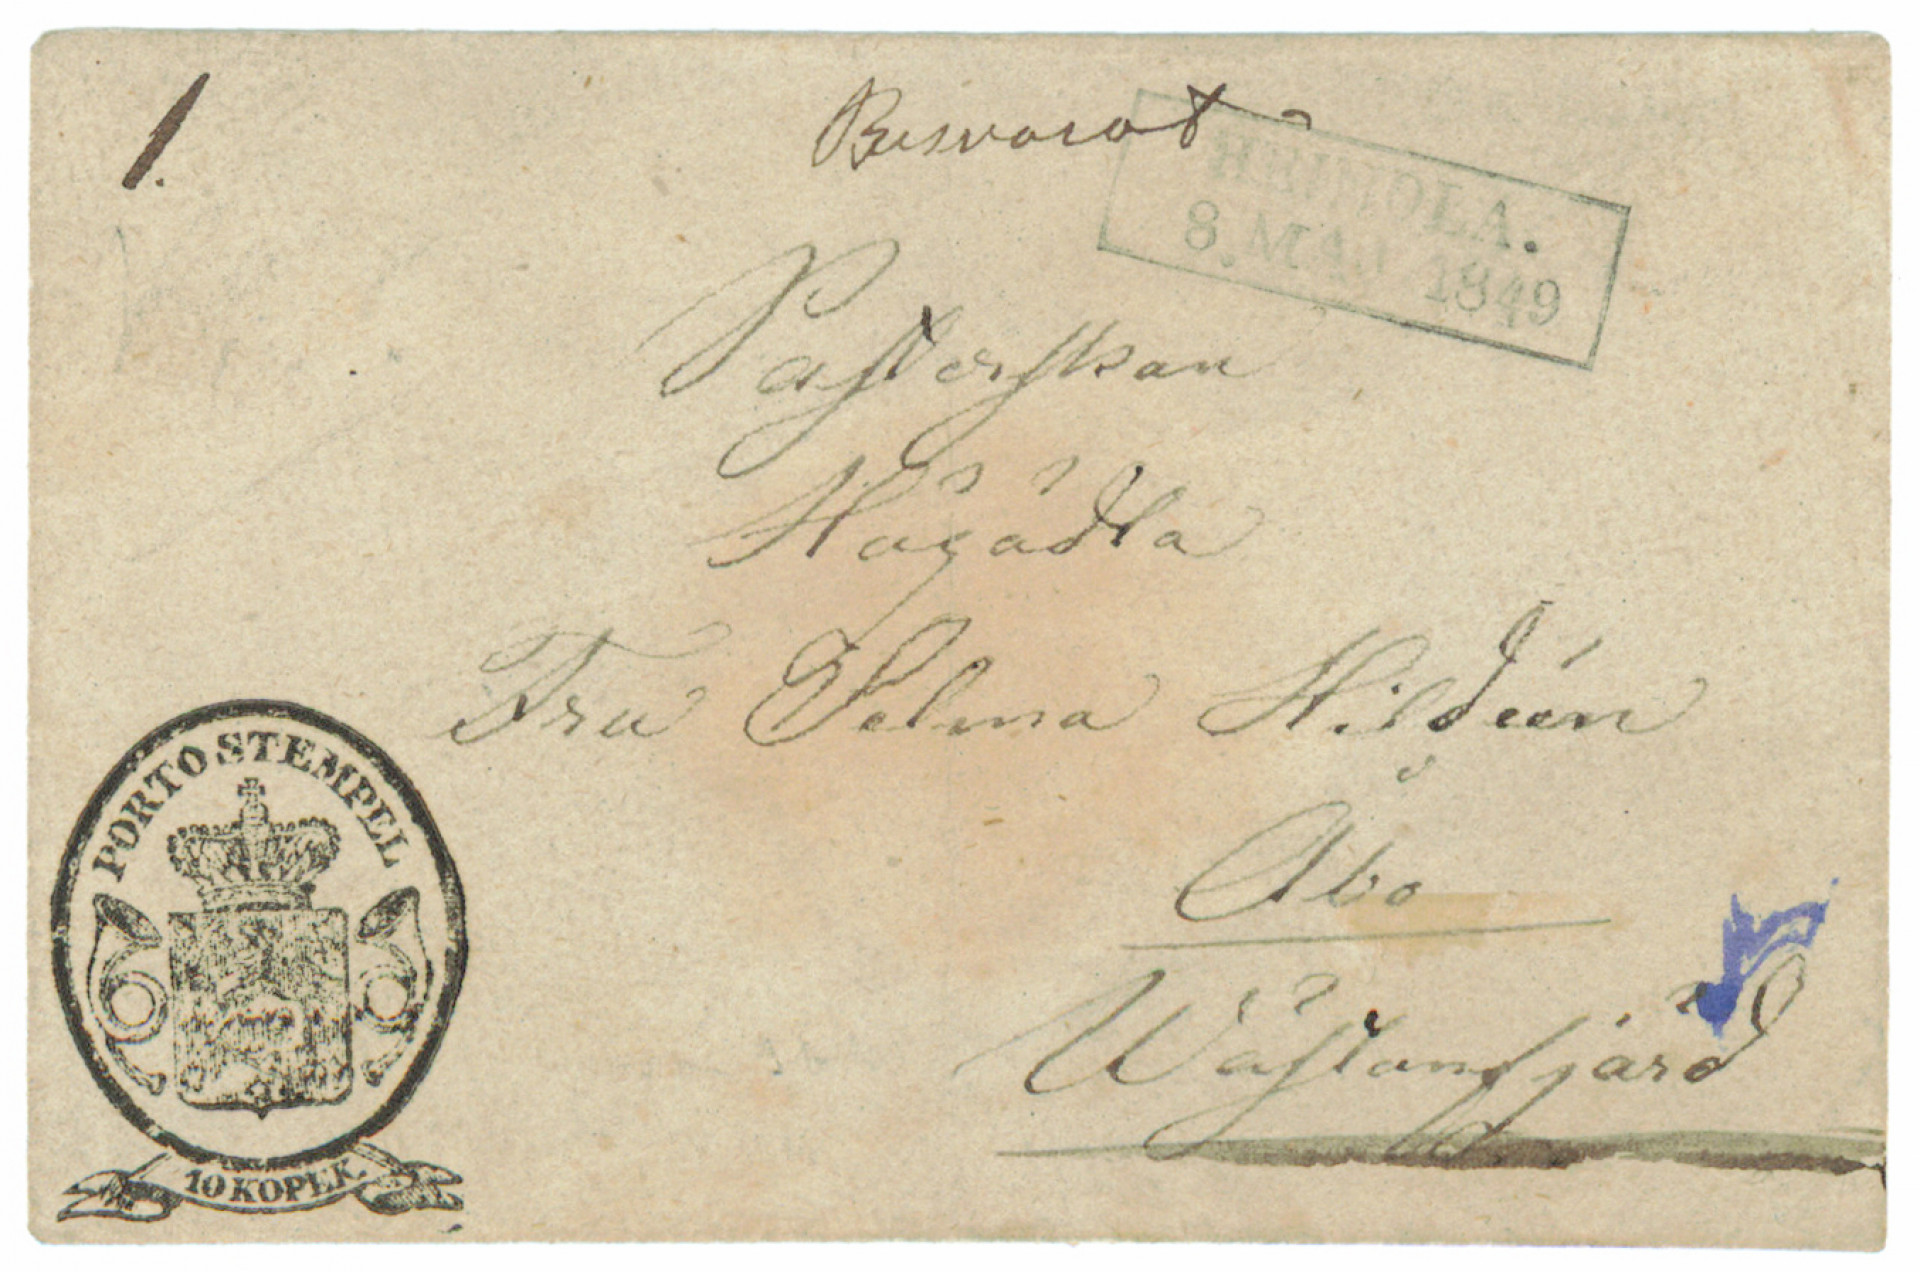 1.
Besvarat
HEINOLA.
8. MAJ 1849
Pastorskan
Högädla
Fru Selma Hildeén
Åbo
Wästanfjärd
PORTO STEMPEL
10 KOPEK.